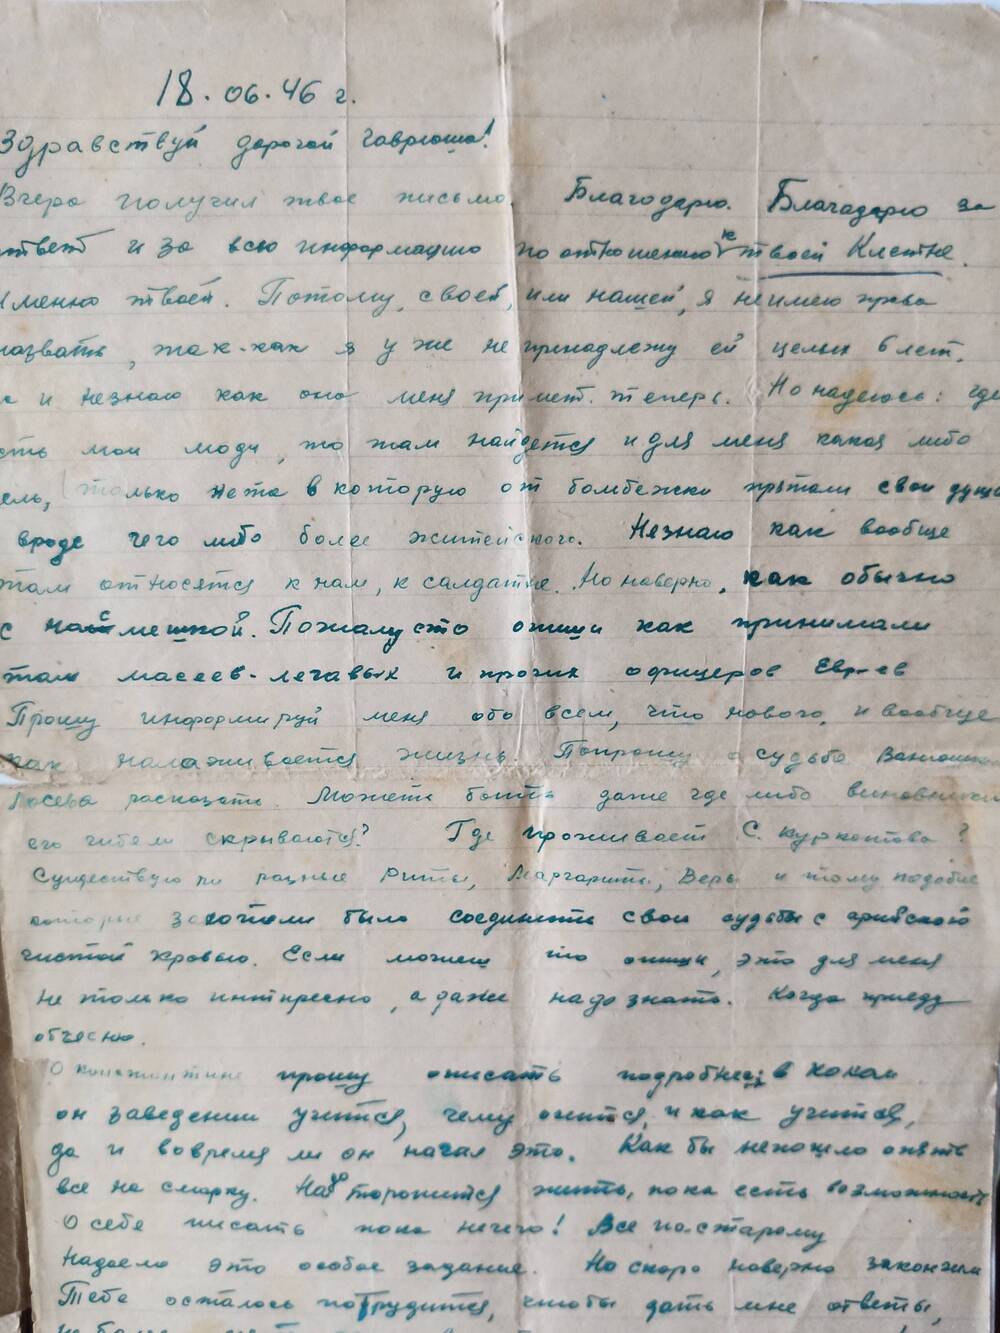 18.06.46 г.
Здравствуй дорогой Гаврюша!
Вчера получил твое письмо. Благодарю. Благадарю за
ответ и за всю информацию по отношению к твоей Клетне.
Именно твоей. Потому, своей, или нашей, я неимею права
назвать, так-как я уже не принадлежу ей целых 6 лет.
и незнаю как она меня примет теперь. Но надеюсь: где
есть мои люди, то там найдется и для меня какая либо
только не та в которую от бомбежки прятали свои души
вроде чего либо более житейского. Незнаю как вообще
там относятся к нам, к салдатне. Но наверно, как обычно
с насмешкой. Пожалуста опиши как принимали
там масеев-легавых и прочих офицеров Евреев
Прошу информируй меня обо всем, что нового, и вообще
как налаживается жизнь. Попрошу о судьбе
расказать. Может быть даже где либо виновники
его гибели скрываются? Где проживает С. Куркотова?
Существую ли разные Риты, Маргариты, Веры и тому подобие
которые захотели было соединить свои судьбы с арийской
чистой кровью. Если можеш то опиши, это для меня
не только интресно, а даже надо знать. Когда приеду
обчесню.
О константине прошу описать подробнее; в каком
он заведении учится, чему учится, и как учится,
да и вовремя ли он начал это. Как бы непошло опять
все на смарку. Надо торопится жить, пока есть возможность
О себе писать пока нечего! Все по старому
Надоело это особое задание. Но скоро наверно закончим
Тебе осталось потрудится, чтобы дать мне ответы,